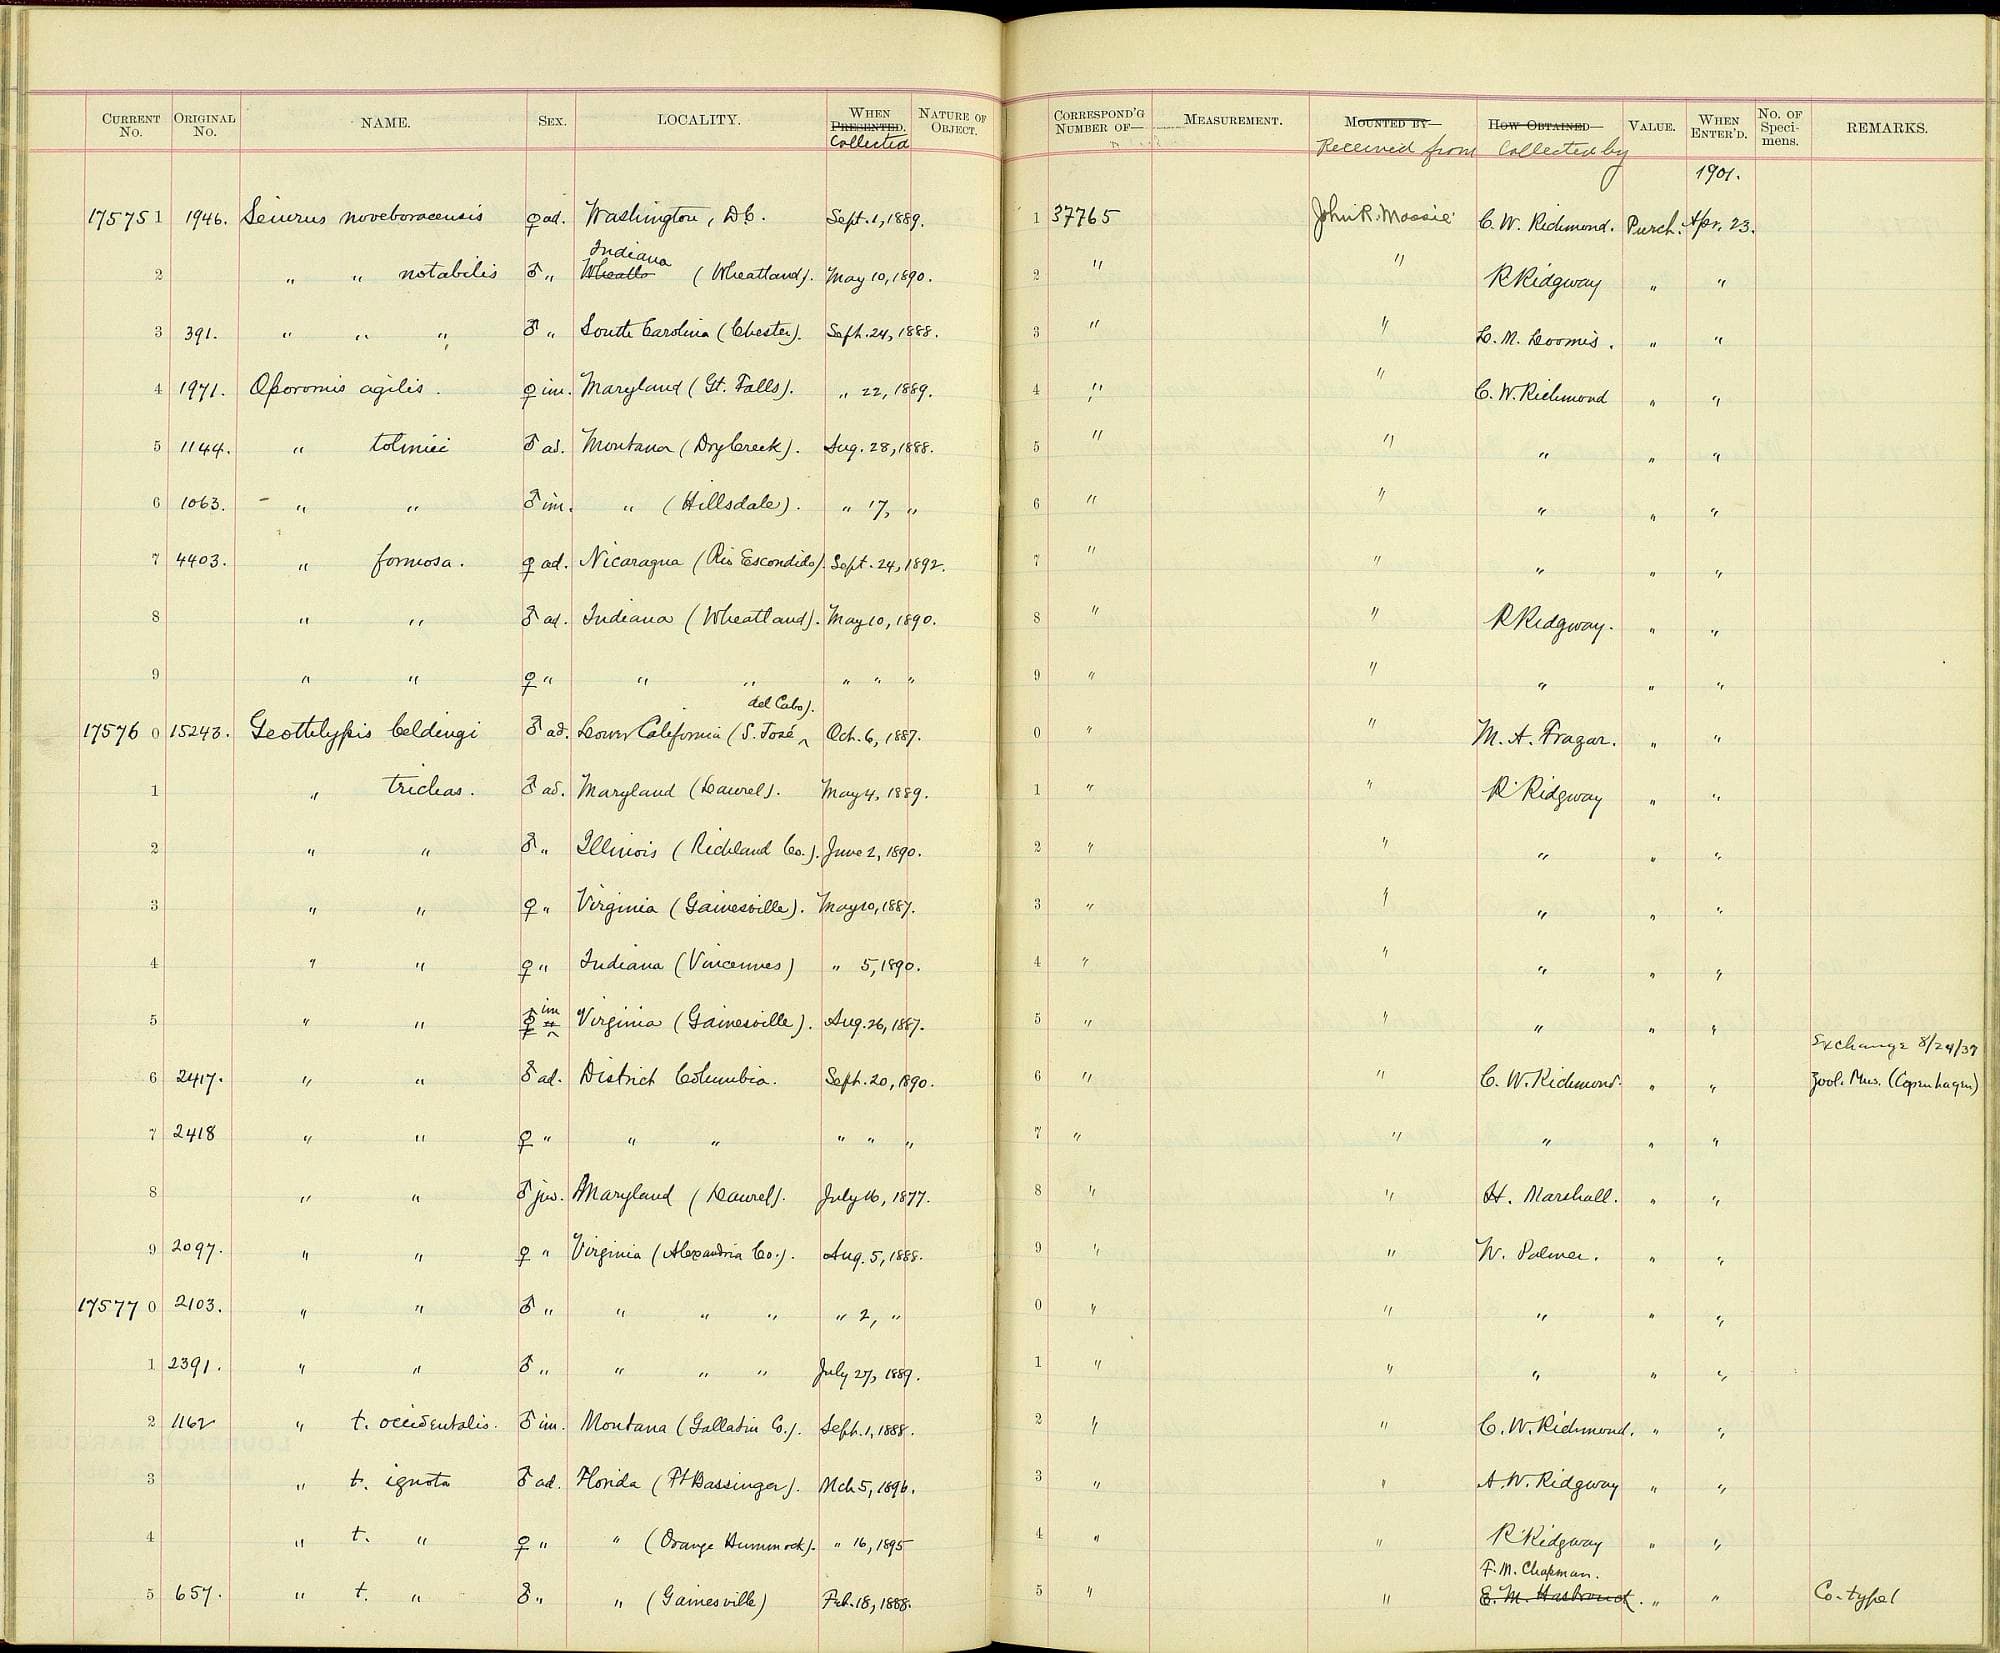 CURRENT No. ORIGINAL No. NAME. SEX. LOCALITY. WHEN PRESENTED. Collected NATURE OF OBJECT. CORRESPOND'G NUMBER OF— MEASUREMENT. MOUNTED BY Received from HOW OBTAINED Collected by VALUE. WHEN ENTER'D. No. OF Speci-mens. REMARKS.
1901.
175751 1946. Seiurus noveboracensis ♀ ad. Washington, D.C. Sept. 1, 1889. 1 37765 John R. Massie C. W. Richmond. Purch. Apr. 23.
Indiana
2 " " notabilis ♂ " Wheatla (Wheatland). May 10, 1890. 2 " " R Ridgway " "
3 391. " " " ♂ " South Carolina (Chester). Sept. 24, 1888. 3 " " L. M. Loomis. " "
4 1971. Oporornis agilis. ♀ im. Maryland (Gt. Falls). " 22, 1889. 4 " " C. W. Richmond " "
5 1144. " tolmiei ♂ ad. Montana (Dry Creek). Aug. 28, 1888. 5 " " " " "
6 1063. " " ♂ im. " (Hillsdale). " 17, " 6 " " " " "
7 4403. " formosa. ♀ ad. Nicaragua (Rio Escondido). Sept. 24, 1892. 7 " " " " "
8 " " ♂ ad. Indiana (Wheatland). May 10, 1890. 8 " " R Ridgway. " "
9 " " ♀ " " " " " " 9 " " " " "
del Cabo).
175760 15243. Geothlypis beldingi ♂ ad. Lower California (S. José ^ Oct. 6, 1887. 0 " " M. A. Frazar. " "
1 " trichas. ♂ ad. Maryland (Laurel). May 4, 1889. 1 " " R Ridgway " "
2 " " ♂ " Illinois (Richland Co.). June 2, 1890. 2 " " " " "
3 " " ♀ " Virginia (Gainesville). May 10, 1887. 3 " " " " "
4 " " ♀ " Indiana (Vincennes) " 5, 1890. 4 " " " " "
im
5 " " " ^ Virginia (Gainesville). Aug. 26, 1887. 5 " " " " "
Exchange 8/24/37
6 2417. " " ♂ ad. District Columbia. Sept. 20, 1890. 6 " " C. W. Richmond. " " Zool. Mus. (Copenhagen)
7 2418 " " ♀ " " " " " " 7 " " " " "
8 " " ♂ juv. Maryland (Laurel). July 16, 1877. 8 " " H. Marshall. " "
9 2097. " " ♀ " Virginia (Alexandria Co.). Aug. 5, 1888. 9 " " W. Palmer. " "
175770 2103. " " ♂ " " " " " 2, " 0 " " " " "
1 2391. " " ♂ " " " " July 27, 1889. 1 " " " " "
2 1162 " t. occidentalis. ♂ im. Montana (Gallatin Co.). Sept. 1, 1888. 2 " " C. W. Richmond. " "
3 " t. ignota ♂ ad. Florida (Ft Bassinger). Mch 5, 1896. 3 " " A. W. Ridgway " "
4 " t. " ♀ " " (Orange Hummock). " 16, 1895 4 " " R Ridgway " "
F. M. Chapman.
5 657. " t. " ♂ " " (Gainesville) Feb. 18, 1888. 5 " " E. M. Hasbrouck. " " Co-type!